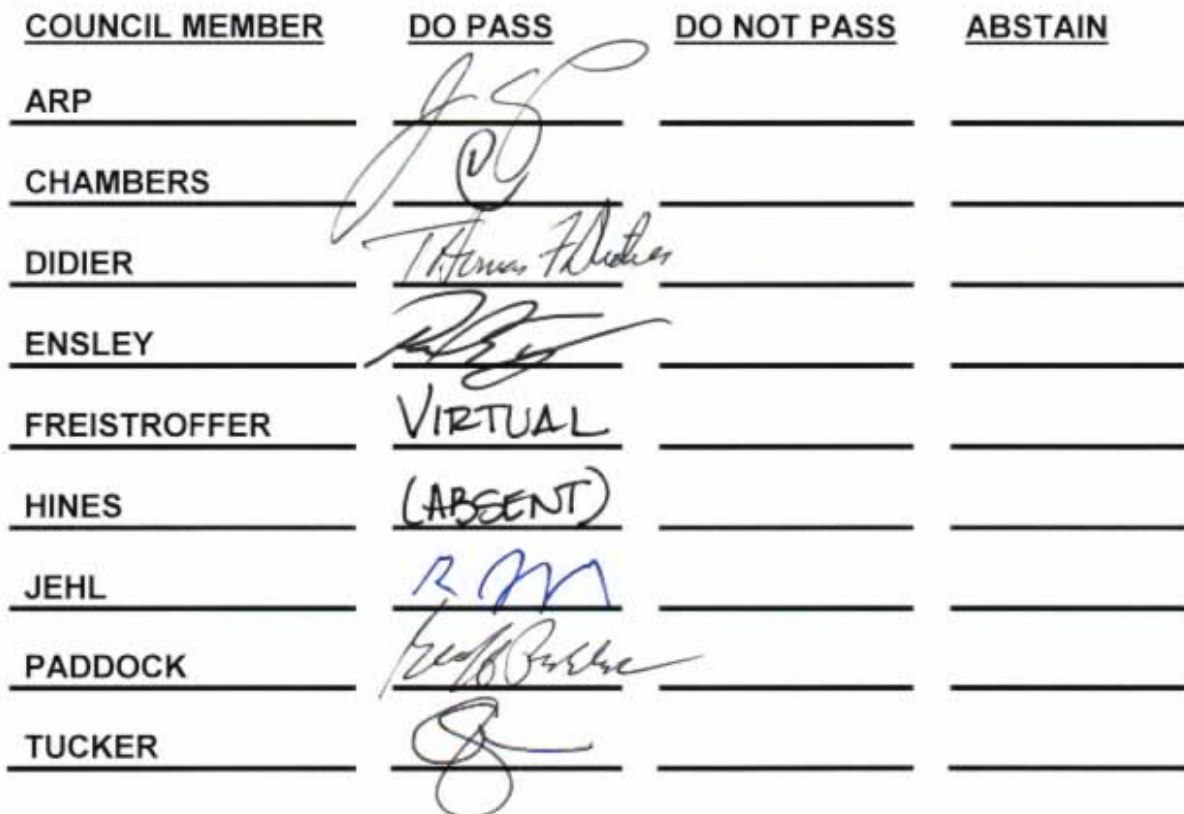 COUNCIL MEMBER DO PASS DO NOT PASS ABSTAIN
ARP
CHAMBERS
DIDIER Thomas F Didier
ENSLEY
FREISTROFFER VIRTUAL
HINES (ABSENT)
JEHL
PADDOCK
TUCKER